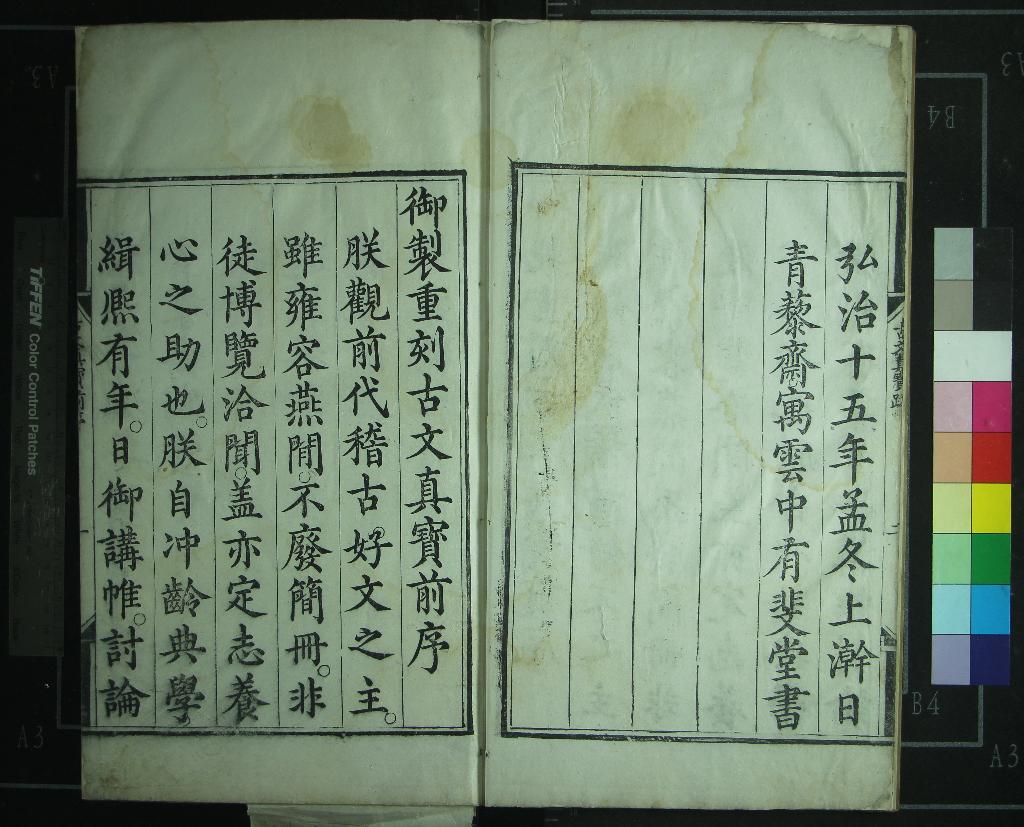 弘治十五年孟冬上澣日
青藜齋寓雲中有斐堂書
御製重刻古文真寶前序
朕觀前代稽古。好文之主。
雖雍容燕閒。不廢簡冊。非
徒博覽洽聞。盖亦定志養
心之助也。朕自冲齡典學
緝熈有年。日御講帷。討論
TIFFEN Color Control Patches
A3
B4
A3
B4
A3
A3